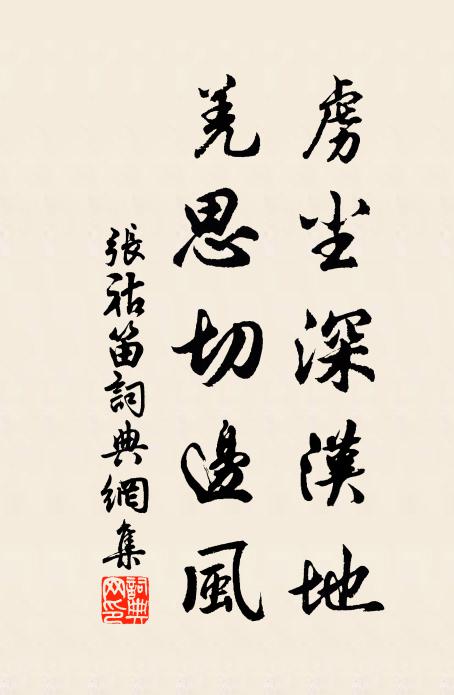 虏尘深漢地
羌思切邊風
張祜笛詞典網集
詞典网印